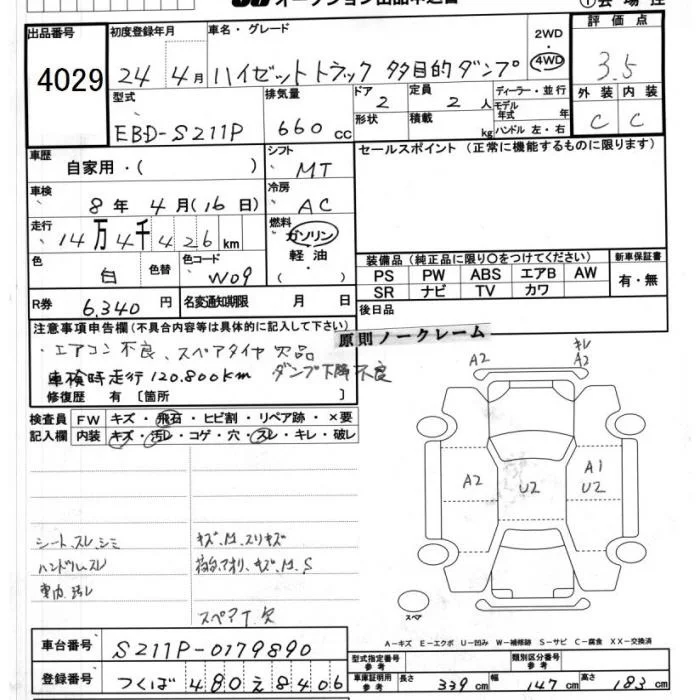 オークション出品申込書
①会場控
出品番号
4029
初度登録年月
24年4月
車名・グレード
ハイゼットトラック 多目的ダンプ
2WD
4WD
評価点
3.5
型式
EBD-S211P
排気量
660 cc
ドア
2
形状
定員
2 人
積載
kg
ディーラー・並行
モデル年式 年
ハンドル 左・右
外装 内装
C C
車歴
自家用・( )
シフト
MT
セールスポイント (正常に機能するものに限ります)
車検
8年 4月(16日)
冷房
AC
走行
14万4千426km
燃料
ガソリン
軽油
・
色
白
色替
色コード
W09
装備品 (純正品に限り〇をつけてください)
PS PW ABS エアB AW
SR ナビ TV カワ
新車保証書
有・無
R券 6,340円
名変通知期限 月 日
後日品
注意事項申告欄(不具合内容等は具体的に記入して下さい)
原則ノークレーム
・エアコン不良、スペアタイヤ欠品
車検時走行120.800Km ダンプ下降不良
修復歴 有 [箇所
検査員記入欄
FW キズ・飛石・ヒビ割・リペア跡・×要
内装 キズ・汚レ・コゲ・穴・スレ・キレ・破レ
A2
キレ
A2
A2
U2
A1
U2
スペア
シート、スレ、シミ
ハンドルスレ
車内汚レ
キズ、M、スリキズ
荷台、アオリ、キズ、M、S
スペアT欠
A-キズ E-エクボ U-凹み W-補修跡 S-サビ C-腐食 XX-交換済
車台番号
S211P-0179890
登録番号
つくば 480え8406
型式指定番号
参考
類別区分番号
参考
車庫証明用
参考
長さ 339cm
幅 147cm
高さ 183cm